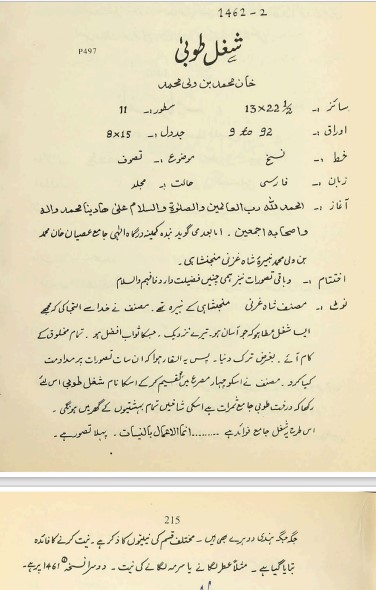 1462 - 2
شغل طوبیٰ
P497
خان محمد بن ولی محمد
سائز :- 13x22 ½ سطور :- 11
اوراق :- 92 to 9 جدول :- 8x15
خط :- نسخ موضوع :- تصوف
زبان :- فارسی حالت :- مجلد
آغاز :- الحمد للہ رب العالمین والصلوٰۃ والسلام علیٰ ھادینا محمد والہ
واصحابہ اجمعین ۔ اما بعد می گوید بندہ کمینہ درگاہ الٰہی جامع عصیان خان محمد
بن ولی محمد نبیرۂ شاہ غزنی منجنشاہی ۔
اختتام :- وباقی تصورات نیز ہمی چنیں فضیلت دارد فافہم والسلام
نوٹ :- مصنف شاہ غزنی منجنشاہی کے نبیرہ تھے ۔ مصنف نے خدا سے التجا کی کہ مجھے
ایسا شغل عطا ہو کہ جو آسان ہو ۔ تیرے نزدیک ، جسکا ثواب افضل ہو ۔ تمام مخلوق کے
کام آئے ۔ بغرض ترک دنیا ۔ پس یہ القاء ہوا کہ ان سات تصورات پر مداومت
کیا کرو ۔ مصنف نے اسکو چہار مصرع میں تقسیم کر کے اسکا نام شغل طوبیٰ اس لئے
رکھا کہ درخت طوبیٰ جامع ثمرات ہے اسکی شاخیں تمام بہشتیوں کے گھر میں ہونگی ۔
اس طرح یہ شغل جامع فوائد ہے ......... انما الاعمال بالنیات ۔ پہلا تصور ہے ۔
215
جگہ جگہ ہندی دوہرے بھی ہیں ۔ مختلف قسم کی نیتوں کا ذکر ہے ۔ نیت کرنے کا فائدہ
بتایا گیا ہے ۔ مثلاً عطر لگانے یا سرمہ لگانے کی نیت ۔ دوسرا نسخہ 1461 پر ہے ۔